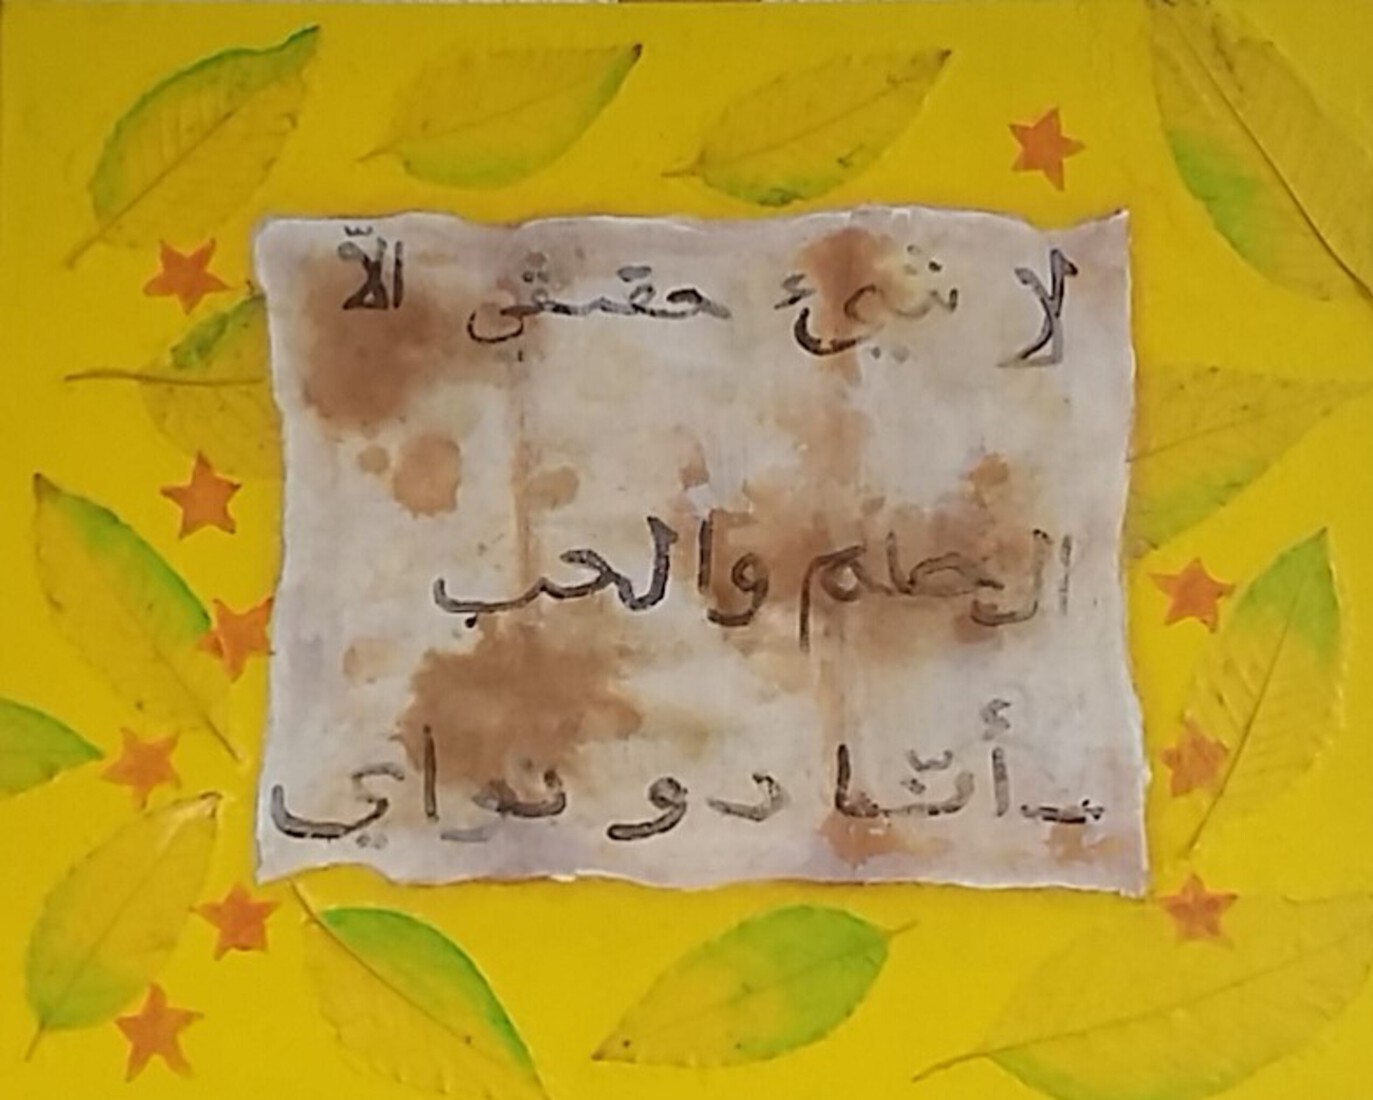 لا شيئ حقيقي الاّ
الحلم والحب
ـ أنّا دو نواي